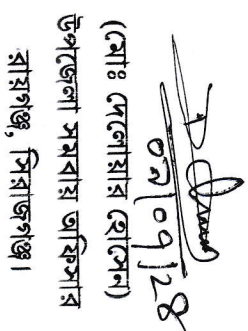 ০৯/০৭/২৪
(মোঃ দেলোয়ার হোসেন)
উপজেলা সমবায় অফিসার
রায়গঞ্জ, সিরাজগঞ্জ।